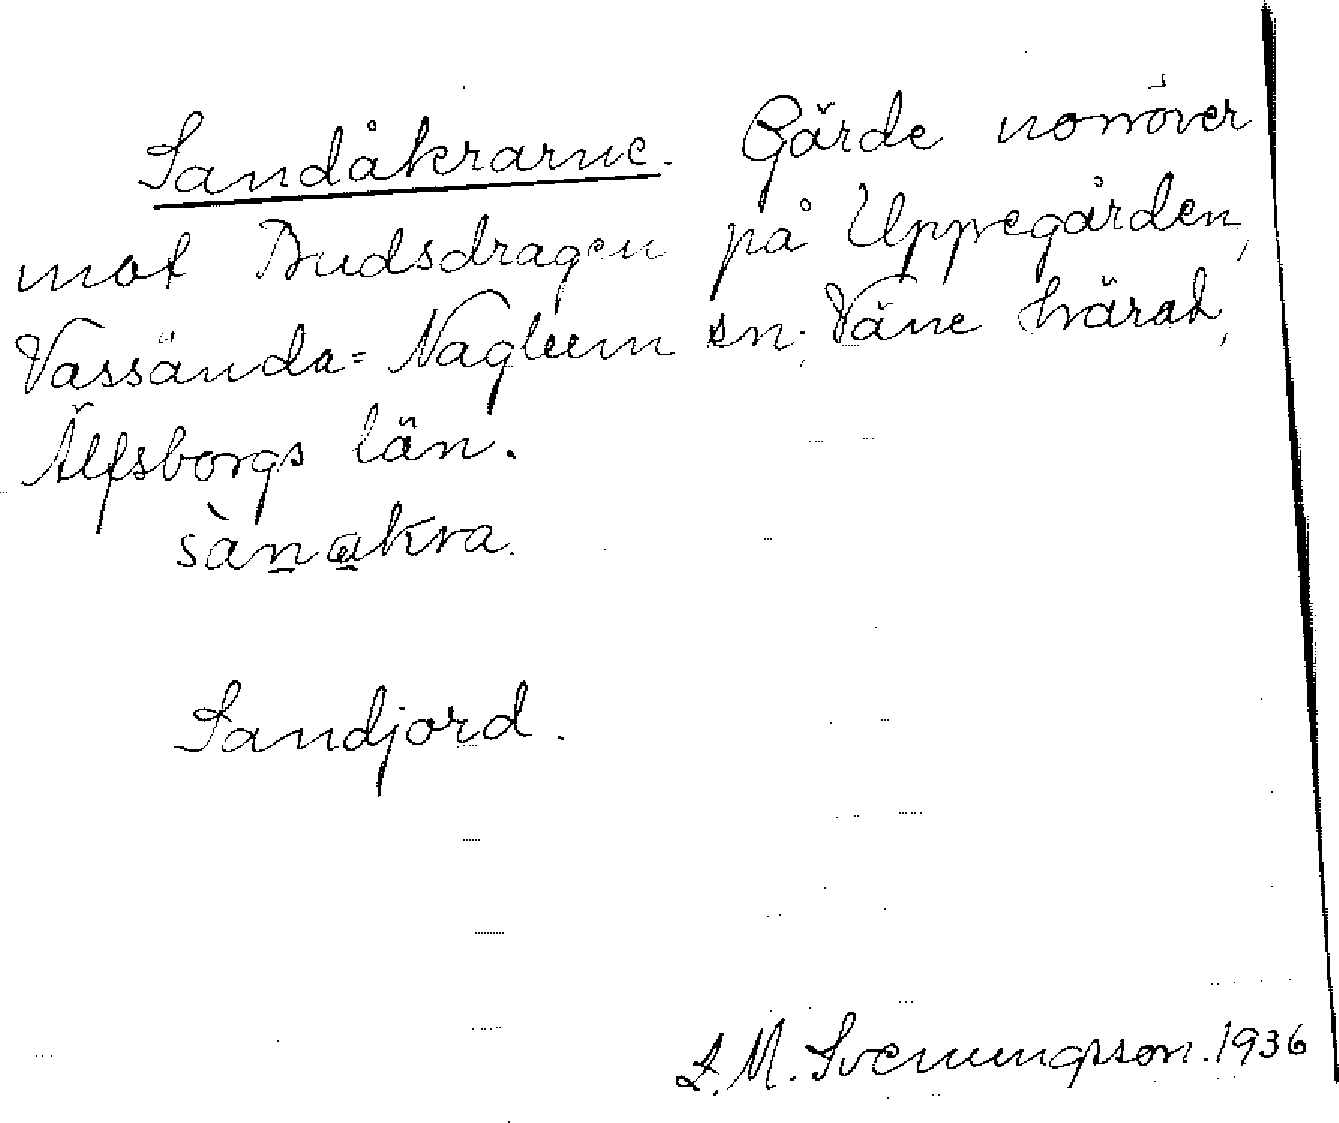 Sandåkrarne. Gärde norröver
mot Budsdragen på Uppegården,
Vassända=Naglum sn. Väne härad,
Älfsborgs län.
sànakra.
Sandjord.
L. M. Svenungsson. 1936